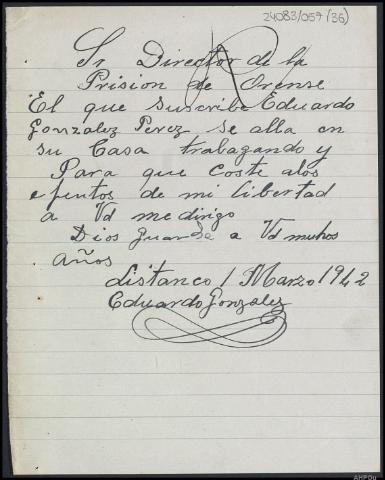 24083/057 (36)
Sr Director de la
Prision de Orense
El que suscribe Eduardo
Gonzalez Perez se alla en
su Casa trabagando y
Para que coste alos
efentos de mi libertad
a Vd me dirigo
Dios guarde a Vd muhos
años
listanco 1 Marzo 1942
Eduardo Gonzalez
AHPOu